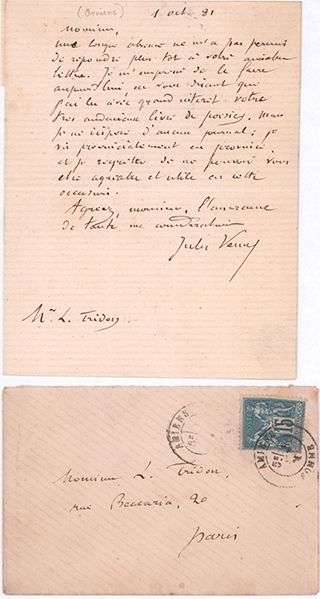 (Amiens) 1 octe 81
Monsieur,
une longue absence ne m'a pas permis
de répondre plus tôt à votre aimable
lettre. Je m'empresse de le faire
aujourd'hui, en vous disant que
j'ai lu avec grand intérêt votre
très audacieux livre de poésies, mais
je ne dispose d'aucun journal; je
vis provincialement en province,
et je regrette de ne pouvoir vous
être agréable et utile en cette
occasion.
Agréez, monsieur, l'assurance
de toute ma considération
Jules Verne
Mr. L. Tridon
AMIENS
15
AMIENS
Monsieur L. Tridon,
rue Beccaria, 20
Paris